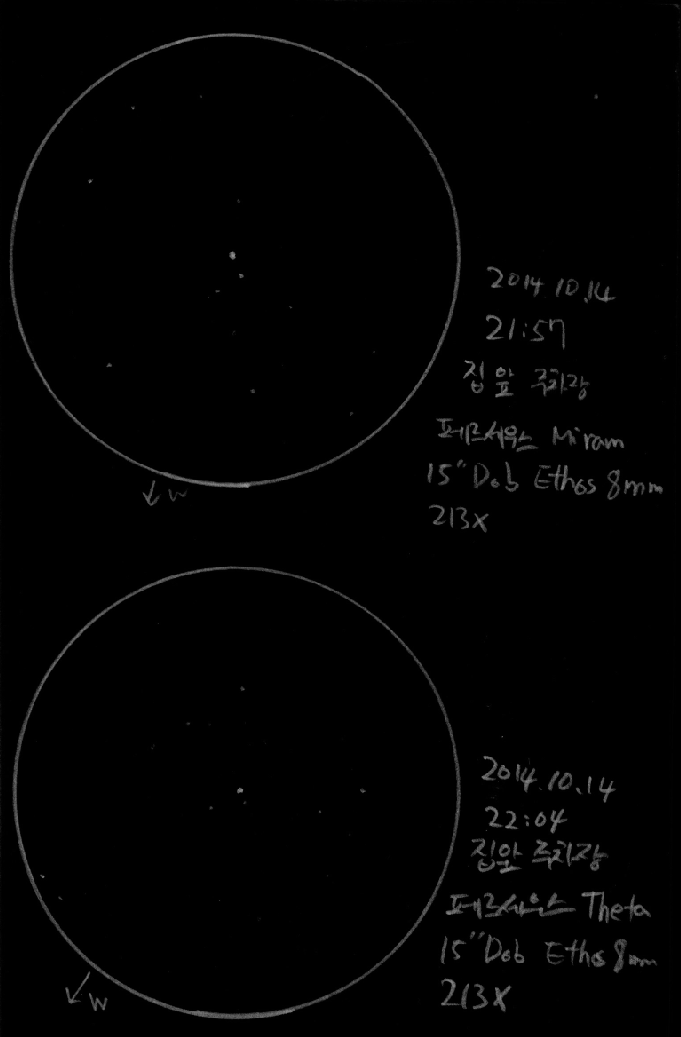 2014.10.14
21:57
집앞 주차장
페르세우스 Miram
15" Dob Ethos 8mm
213X
↙ W
2014.10.14
22:04
집앞 주차장
페르세우스 Theta
15" Dob Ethos 8mm
213X
↙ W